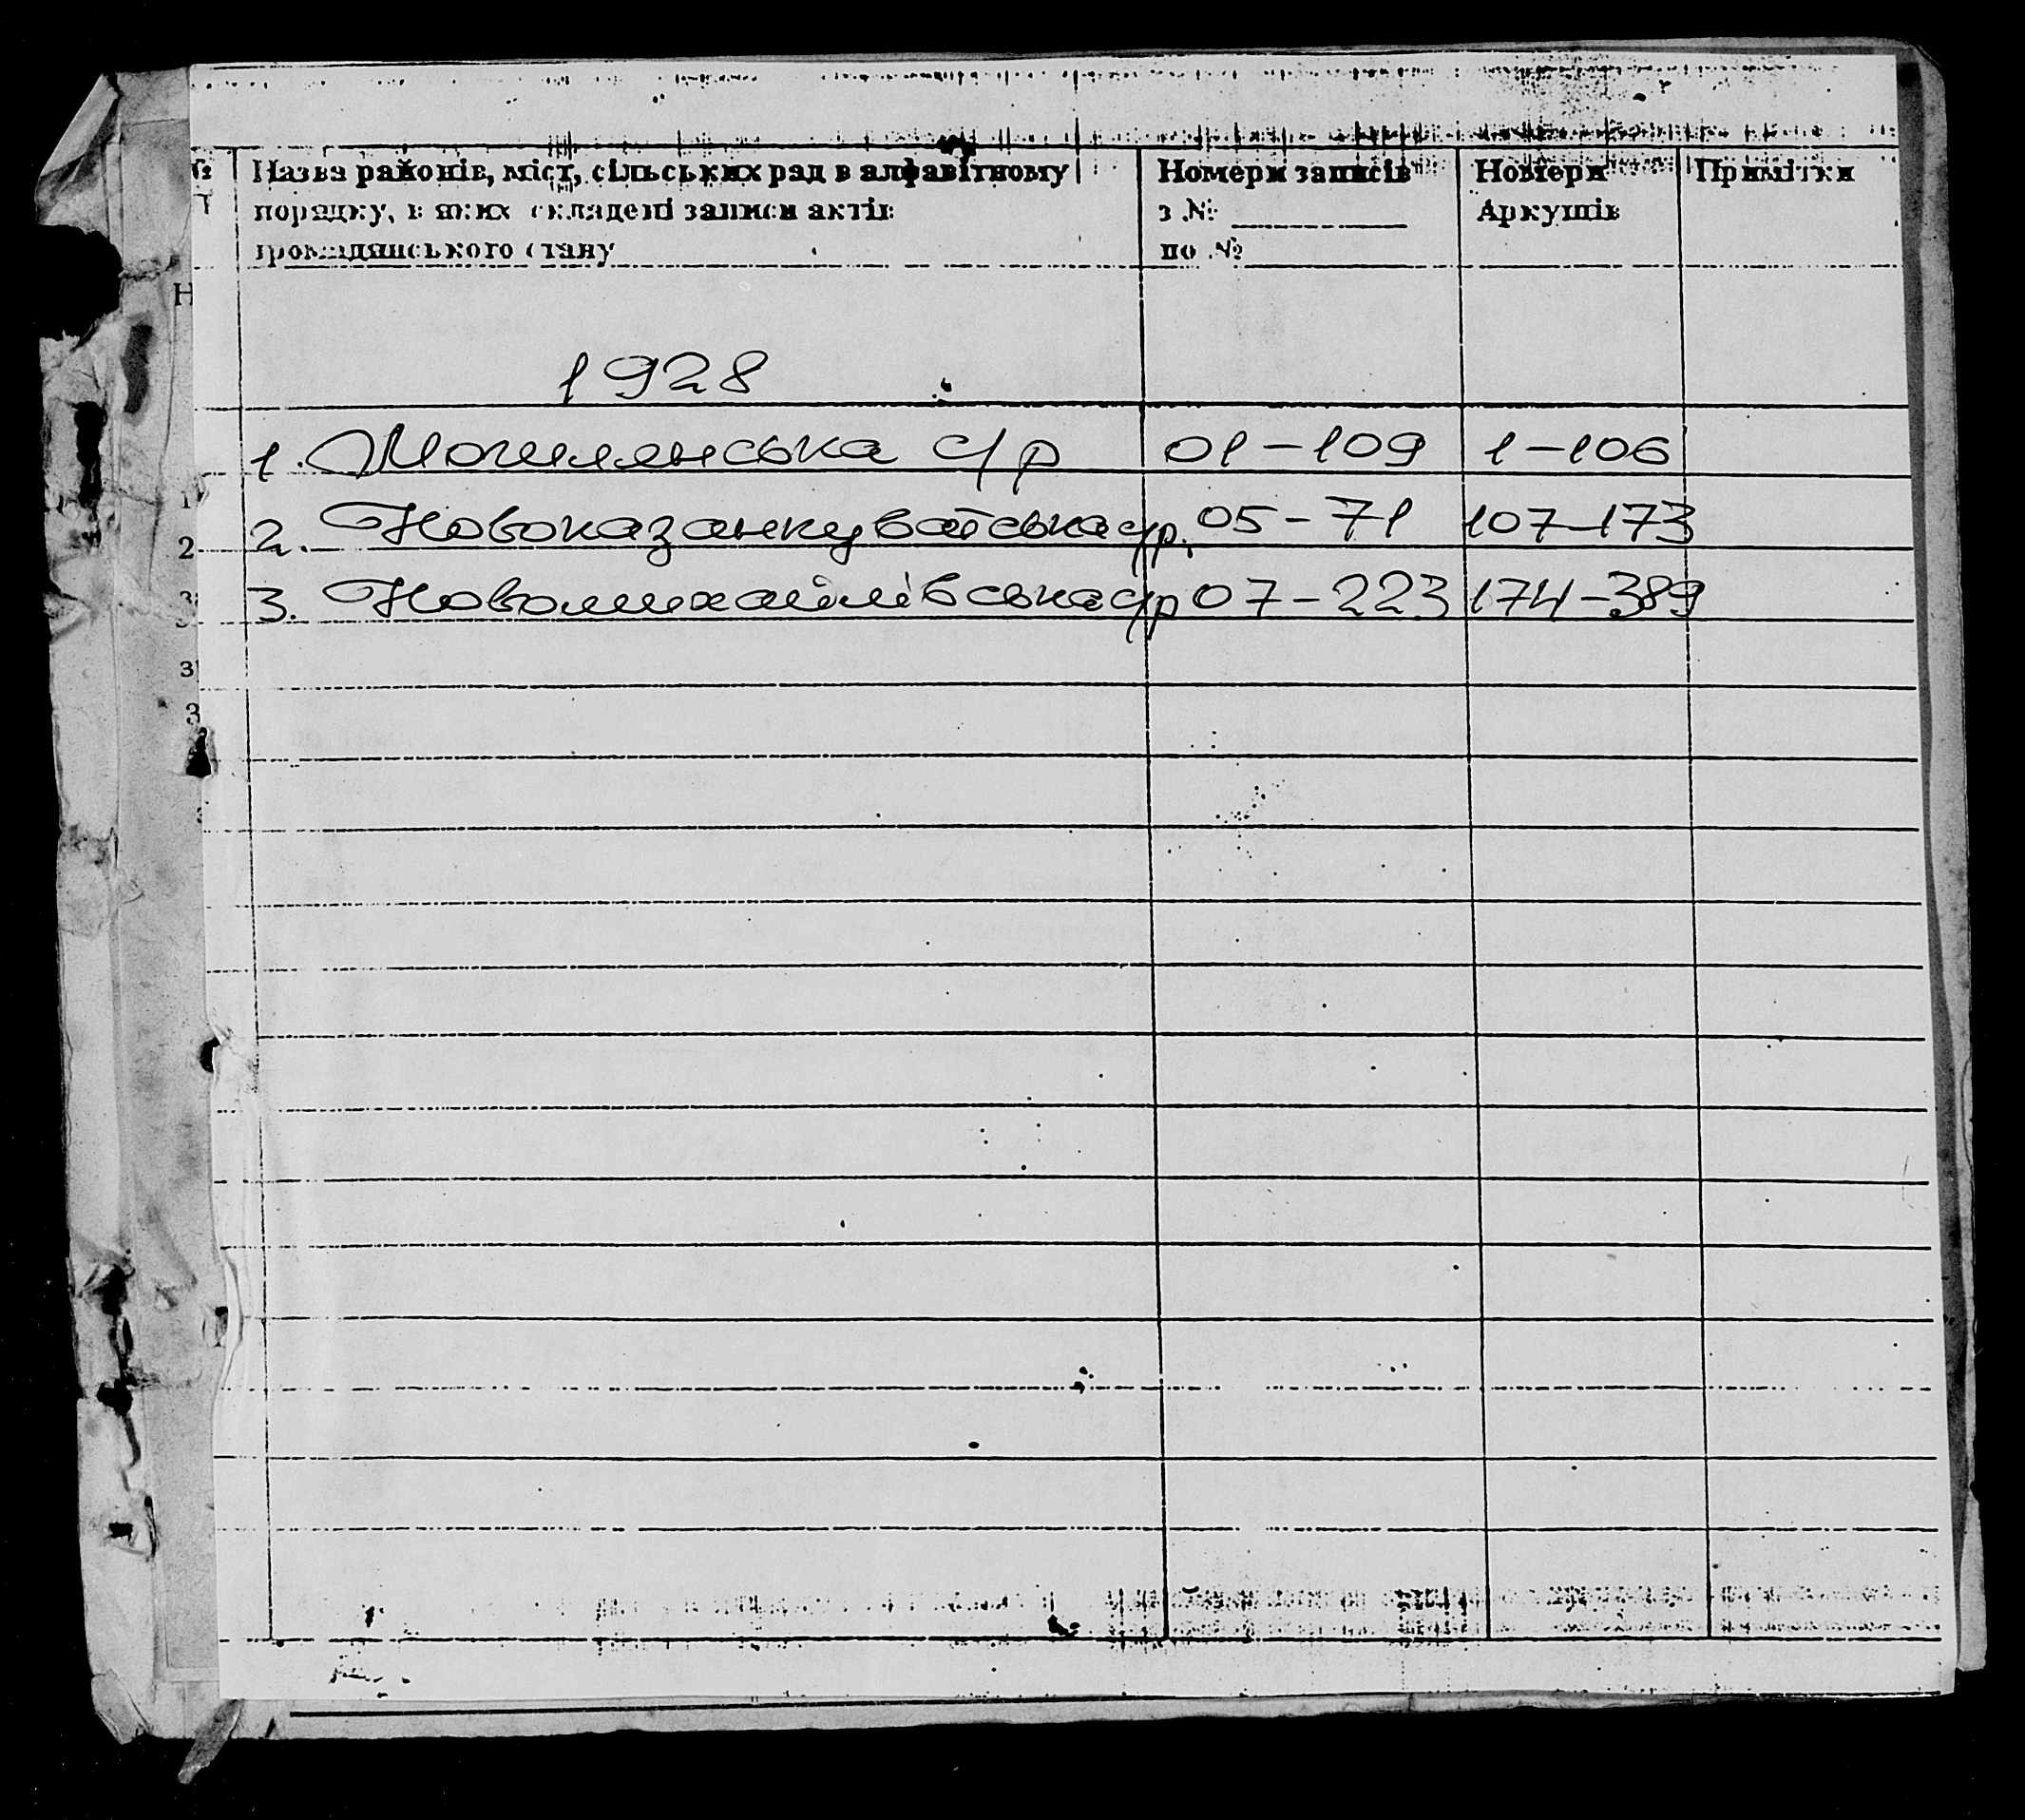 № Назва районів, міст, сільських рад в алфавітному порядку, в яких складені записи актів громадянського стану Номери записів з № по № Номери Аркушів Примітки
1928
1. Могилянська с/р 01-109 1-106
2. Новоказанкуватська с/р. 05-71 107-173
3. Новомихайлівська с/р 07-223 174-389